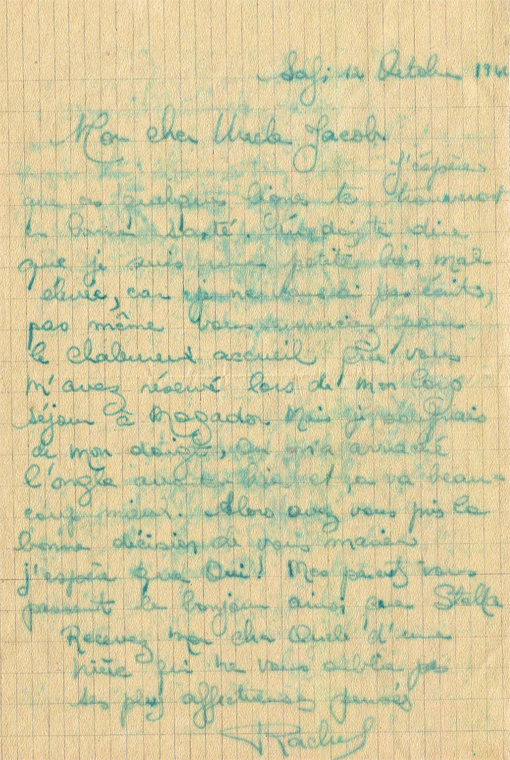 Safi 12 Octobre 194
Mon cher Uncle Jacob
J'espère
que ces quelques lignes te trouveront
en bonne santé. dire
que je suis une petite très mal
élevée, car je ne vous ai pas écrit,
pas même vous remercier pour
le chaleureux accueil que vous
m'avez réservé lors de mon long
séjour à Mogador Mais je
de mon doigt, on m'a arraché
l'ongle avant hier et ça va beau-
coup mieux. Alors avez vous pris la
bonne décision de vous marier
j'espère que Oui! Mes parents vous
passent le bonjour ainsi que Stella
Recevez mon cher Oncle d'une
nièce qui ne vous oublie pas
ses plus affectueuses pensées
Rachel